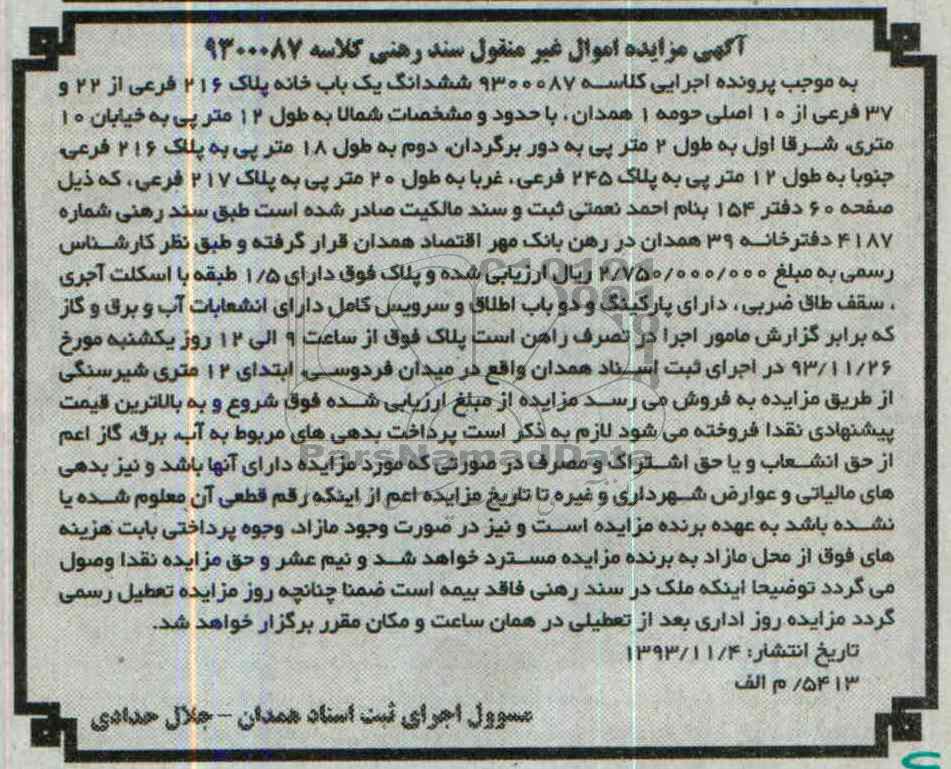 آگهی مزایده اموال غیر منقول سند رهنی کلاسه ۹۳۰۰۰۸۷
به موجب پرونده اجرایی کلاسه ۹۳۰۰۰۸۷ ششدانگ یک باب خانه پلاک ۲۱۶ فرعی از ۲۲ و
۳۷ فرعی از ۱۰ اصلی حومه ۱ همدان، با حدود و مشخصات شمالا به طول ۱۲ متر پی به خیابان ۱۰
متری، شرقا اول به طول ۲ متر پی به دور برگردان، دوم به طول ۱۸ متر پی به پلاک ۲۱۶ فرعی،
جنوبا به طول ۱۲ متر پی به پلاک ۲۴۵ فرعی، غربا به طول ۲۰ متر پی به پلاک ۲۱۷ فرعی، که ذیل
صفحه ۶۰ دفتر ۱۵۴ بنام احمد نعمتی ثبت و سند مالکیت صادر شده است طبق سند رهنی شماره
۴۱۸۷ دفترخانه ۳۹ همدان در رهن بانک مهر اقتصاد همدان قرار گرفته و طبق نظر کارشناس
رسمی به مبلغ ۲/۷۵۰/۰۰۰/۰۰۰ ریال ارزیابی شده و پلاک فوق دارای ۱/۵ طبقه با اسکلت آجری
، سقف طاق ضربی، دارای پارکینگ و دو باب اطلاق و سرویس کامل دارای انشعابات آب و برق و گاز
که برابر گزارش مامور اجرا در تصرف راهن است پلاک فوق از ساعت ۹ الی ۱۲ روز یکشنبه مورخ
۹۳/۱۱/۲۶ در اجرای ثبت اسناد همدان واقع در میدان فردوسی، ابتدای ۱۲ متری شیرسنگی
از طریق مزایده به فروش می رسد مزایده از مبلغ ارزیابی شده فوق شروع و به بالاترین قیمت
پیشنهادی نقدا فروخته می شود لازم به ذکر است پرداخت بدهی های مربوط به آب، برق، گاز اعم
از حق انشعاب و یا حق اشتراک و مصرف در صورتی که مورد مزایده دارای آنها باشد و نیز بدهی
های مالیاتی و عوارض شهرداری و غیره تا تاریخ مزایده اعم از اینکه رقم قطعی آن معلوم شده یا
نشده باشد به عهده برنده مزایده است و نیز در صورت وجود مازاد، وجوه پرداختی بابت هزینه
های فوق از محل مازاد به برنده مزایده مسترد خواهد شد و نیم عشر و حق مزایده نقدا وصول
می گردد توضیحا اینکه ملک در سند رهنی فاقد بیمه است ضمنا چنانچه روز مزایده تعطیل رسمی
گردد مزایده روز اداری بعد از تعطیلی در همان ساعت و مکان مقرر برگزار خواهد شد.
تاریخ انتشار: ۱۳۹۳/۱۱/۴
۵۴۱۳/ م الف
مسوول اجرای ثبت اسناد همدان – جلال حدادی
ParsNamadData